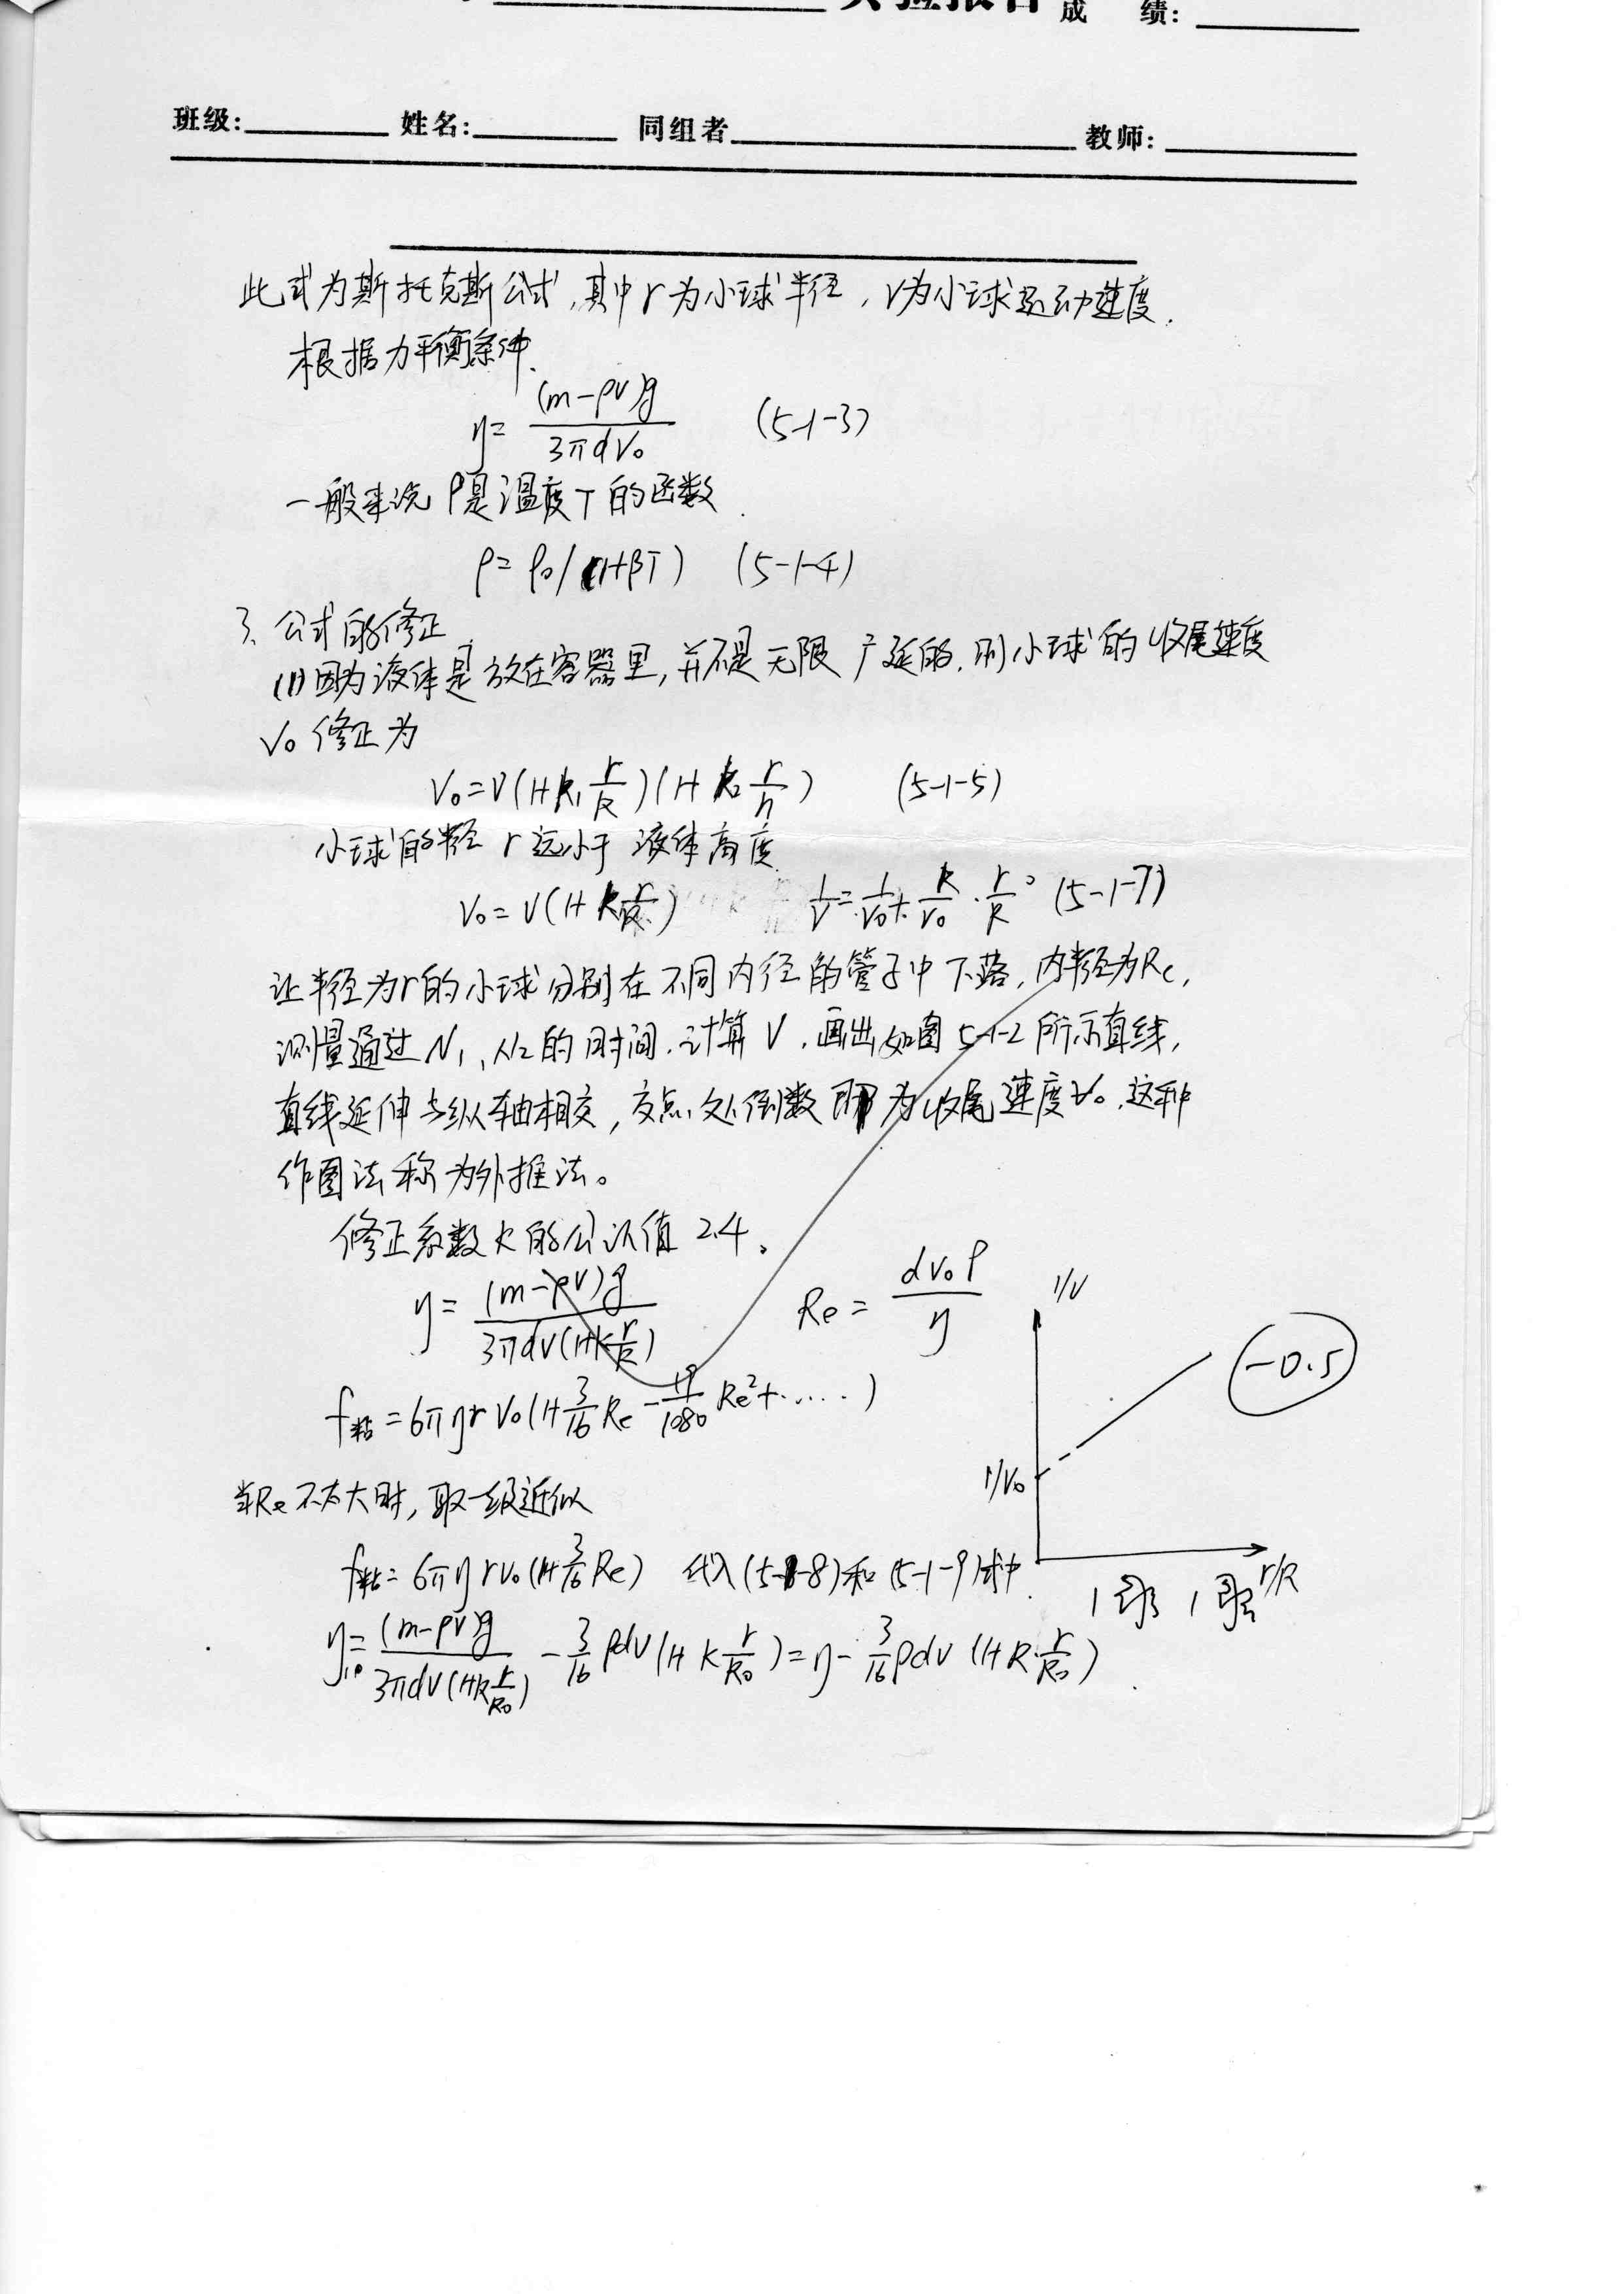 实验报告 成 绩:
班级: 姓名: 同组者 教师:
此式为斯托克斯公式,其中r为小球半径,v为小球运动速度.
根据力平衡条件.
η= (m-ρV)g / 3πdV₀ (5-1-3)
一般来说 ρ是温度T的函数.
ρ= ρ₀/(1+βT) (5-1-4)
3. 公式的修正
(1)因为液体是放在容器里,并不是无限广延的.则小球的收尾速度
V₀ 修正为
V₀=V(1+k₁ r/R)(1+k₂ r/h) (5-1-5)
小球的半径 r 远小于 液体高度
V₀=V(1+k r/R) 1/V = 1/V₀ + k/V₀ · r/R (5-1-7)
让半径为r的小球分别在不同内径的管子中下落,内半径为Rc,
测量通过N₁、N₂的时间.计算V.画出如图5-1-2所示直线,
直线延伸与纵轴相交,交点处倒数即为收尾速度V₀.这种
作图法称为外推法。
修正系数k的公认值2.4。
η= (m-ρV)g / 3πdV(1+k r/R) Re= dV₀ρ / η
1/V
-0.5
f粘=6πηrV₀(1+3/16 Re - 19/1080 Re²+.....)
1/V₀
当Re不太大时,取一级近似
f粘=6πηrV₀(1+3/16 Re) 代入(5-1-8)和(5-1-9)式中.
r/R
η₁₀= (m-ρV)g / 3πdV(1+k r/R₀) - 3/16 ρdV(1+k r/R₀)=η- 3/16 ρdV(1+k r/R₀).